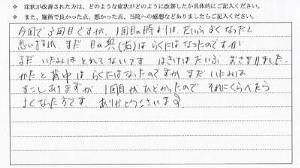 ※ 症状が改善された方は、どのような症状がどのように改善したか具体的にご記入ください。
※ また、施術で良かった点、悪かった点、当院への感想などありましたらご記入ください。
今回で3回目ですが、1回目の時よりは、だいぶよくなったと
思いますが、まだ 目の奥(右)は らくにはなったのですが
まだ いたみは とれてないです はきけは だいぶ おさまりました。
かたと背中は らくにはなったのですが まだ いたみは
すこしありますが 1回目が ひどかったので それにくらべたら
よくなった方です ありがとうございます